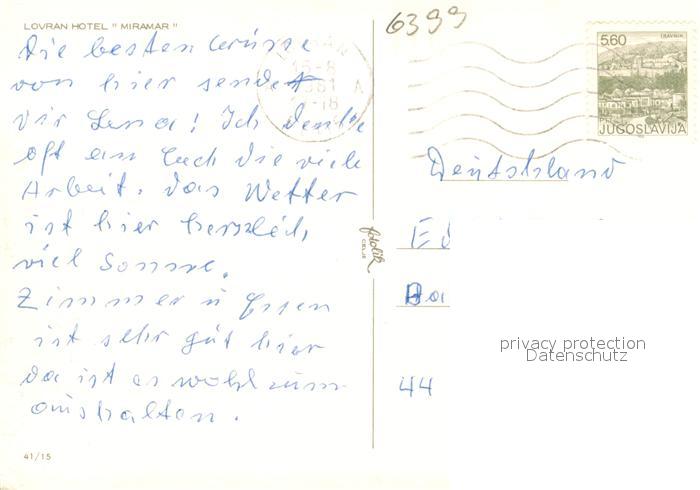 LOVRAN HOTEL " MIRAMAR "
Die besten Grüsse
von hier sendet
Dir Lena! Ich denke
oft an Euch die viele
Arbeit. Das Wetter
ist hier herrlich,
viel Sonne.
Zimmer u Essen
ist sehr gut hier
da ist es wohl zum
aushalten.
41/15
fotolik
CELJE
6399
15-8
1981
18
A
5.60
TRAVNIK
JUGOSLAVIJA
Deutschland
44
privacy protection
Datenschutz